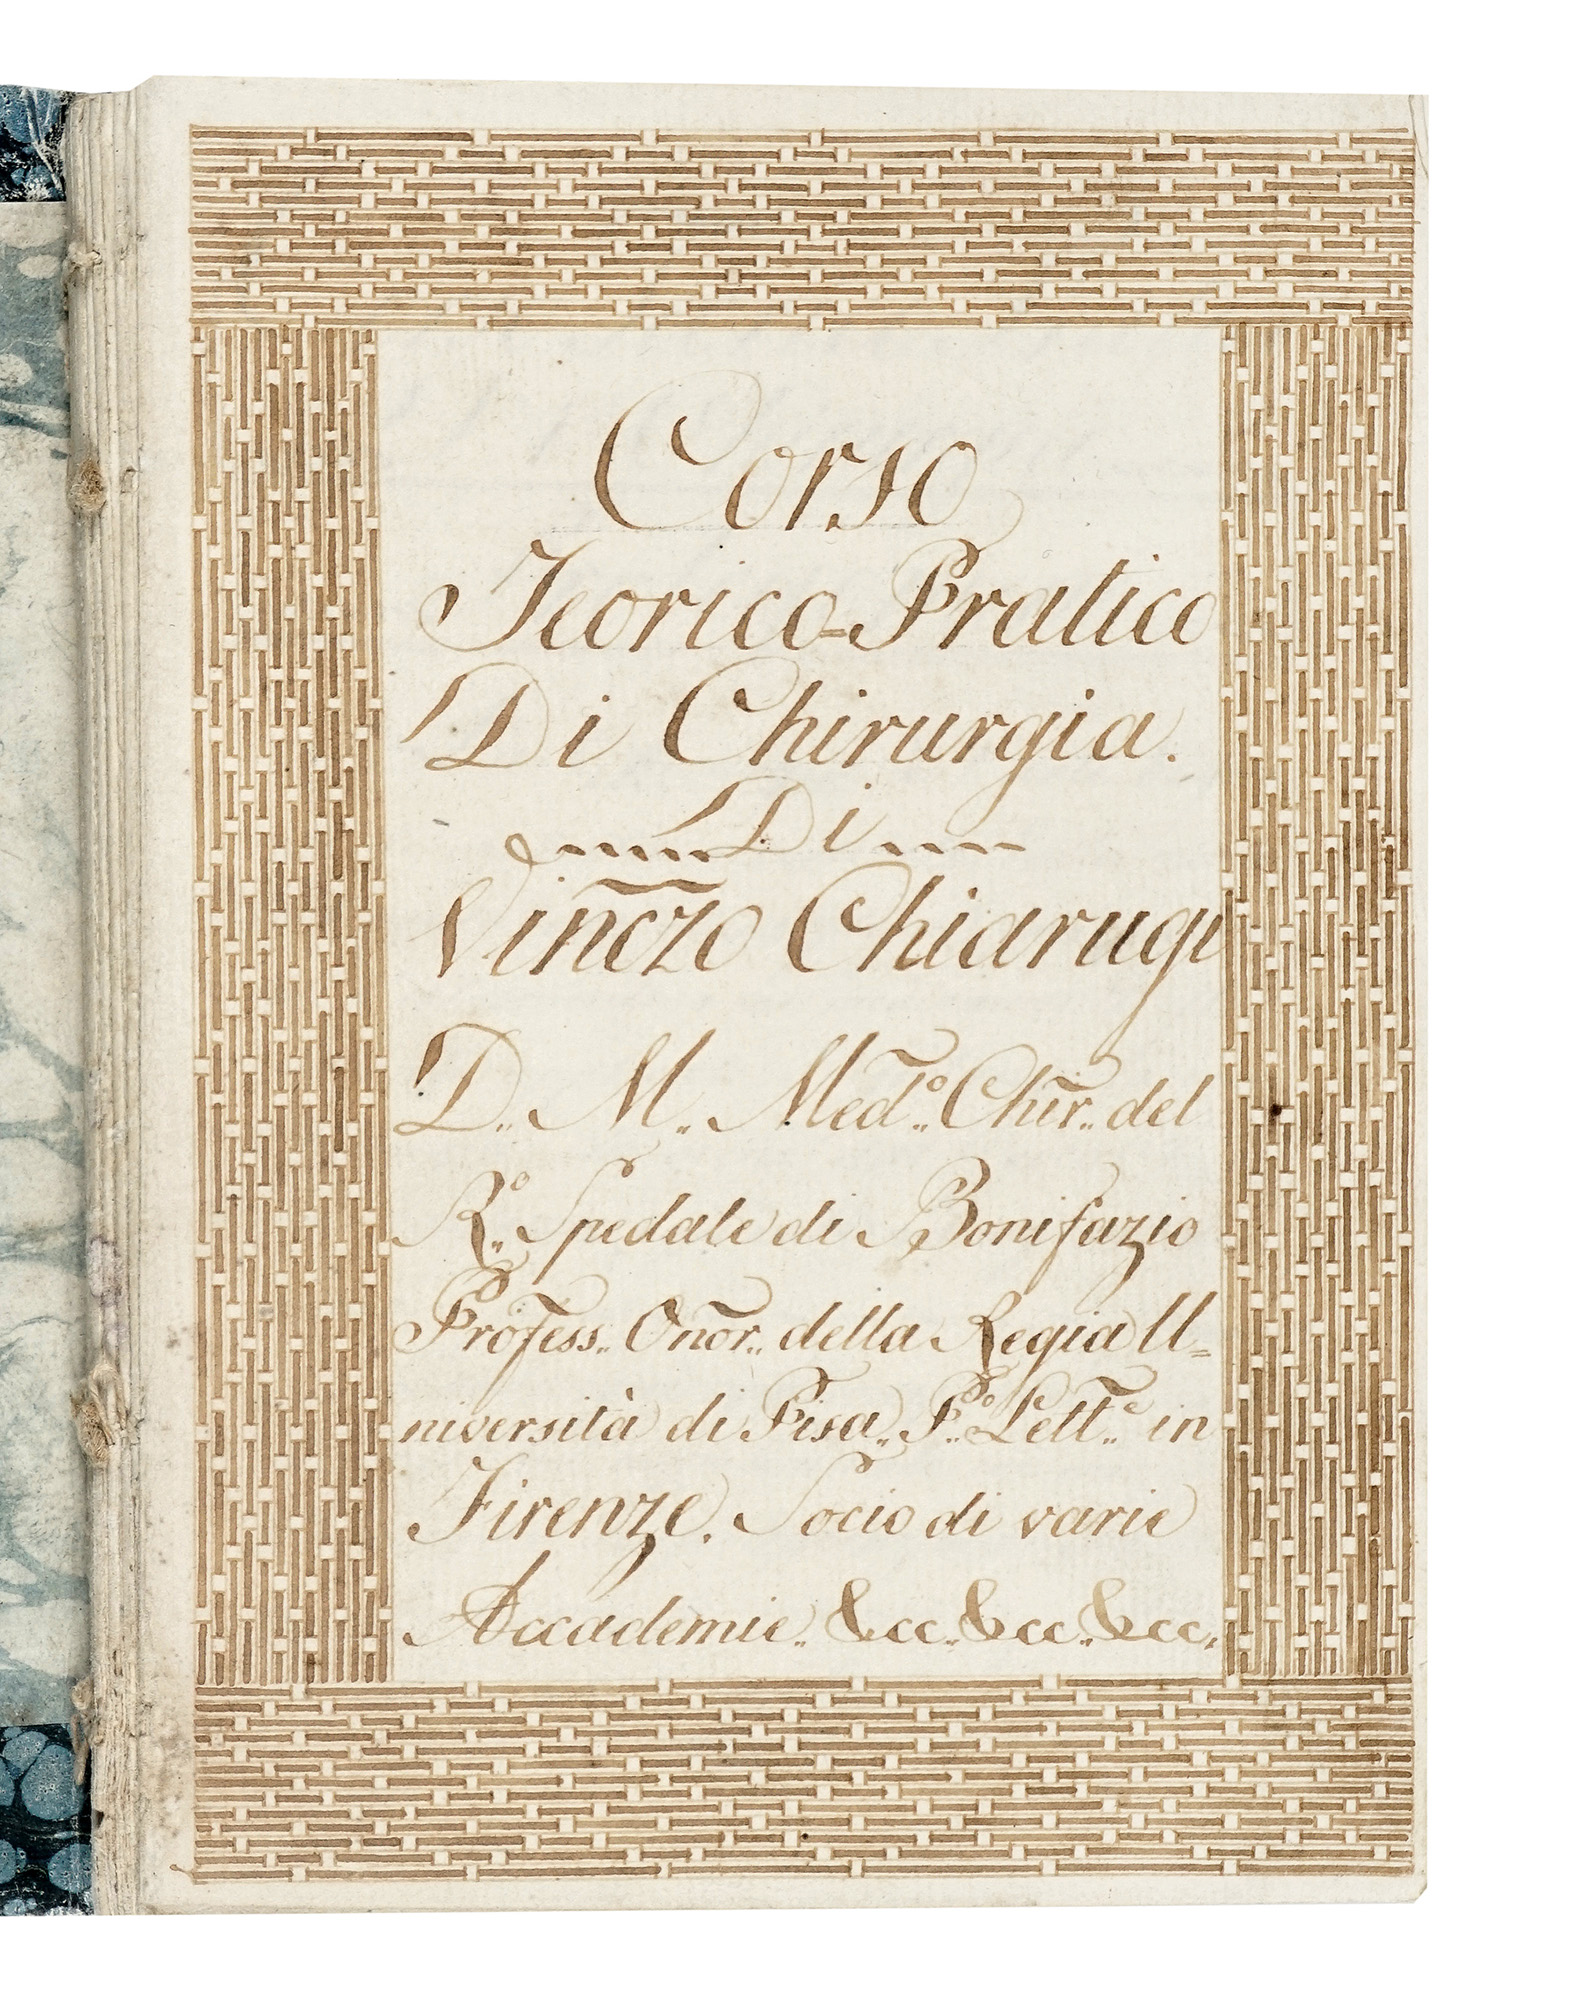 Corso
Teorico=Pratico
Di Chirurgia.
Di
Vincz̃o Chiarugi
D.. M.. Med.º.. Chir̃.. del
R.º.. Spedale di Bonifazio
Profess.. Onor̃.. della Regia U=
niversità di Pisa.. P.º.. Lett.e.. in
Firenze. Socio di varie
Accademie.. &cc..&cc..&cc..